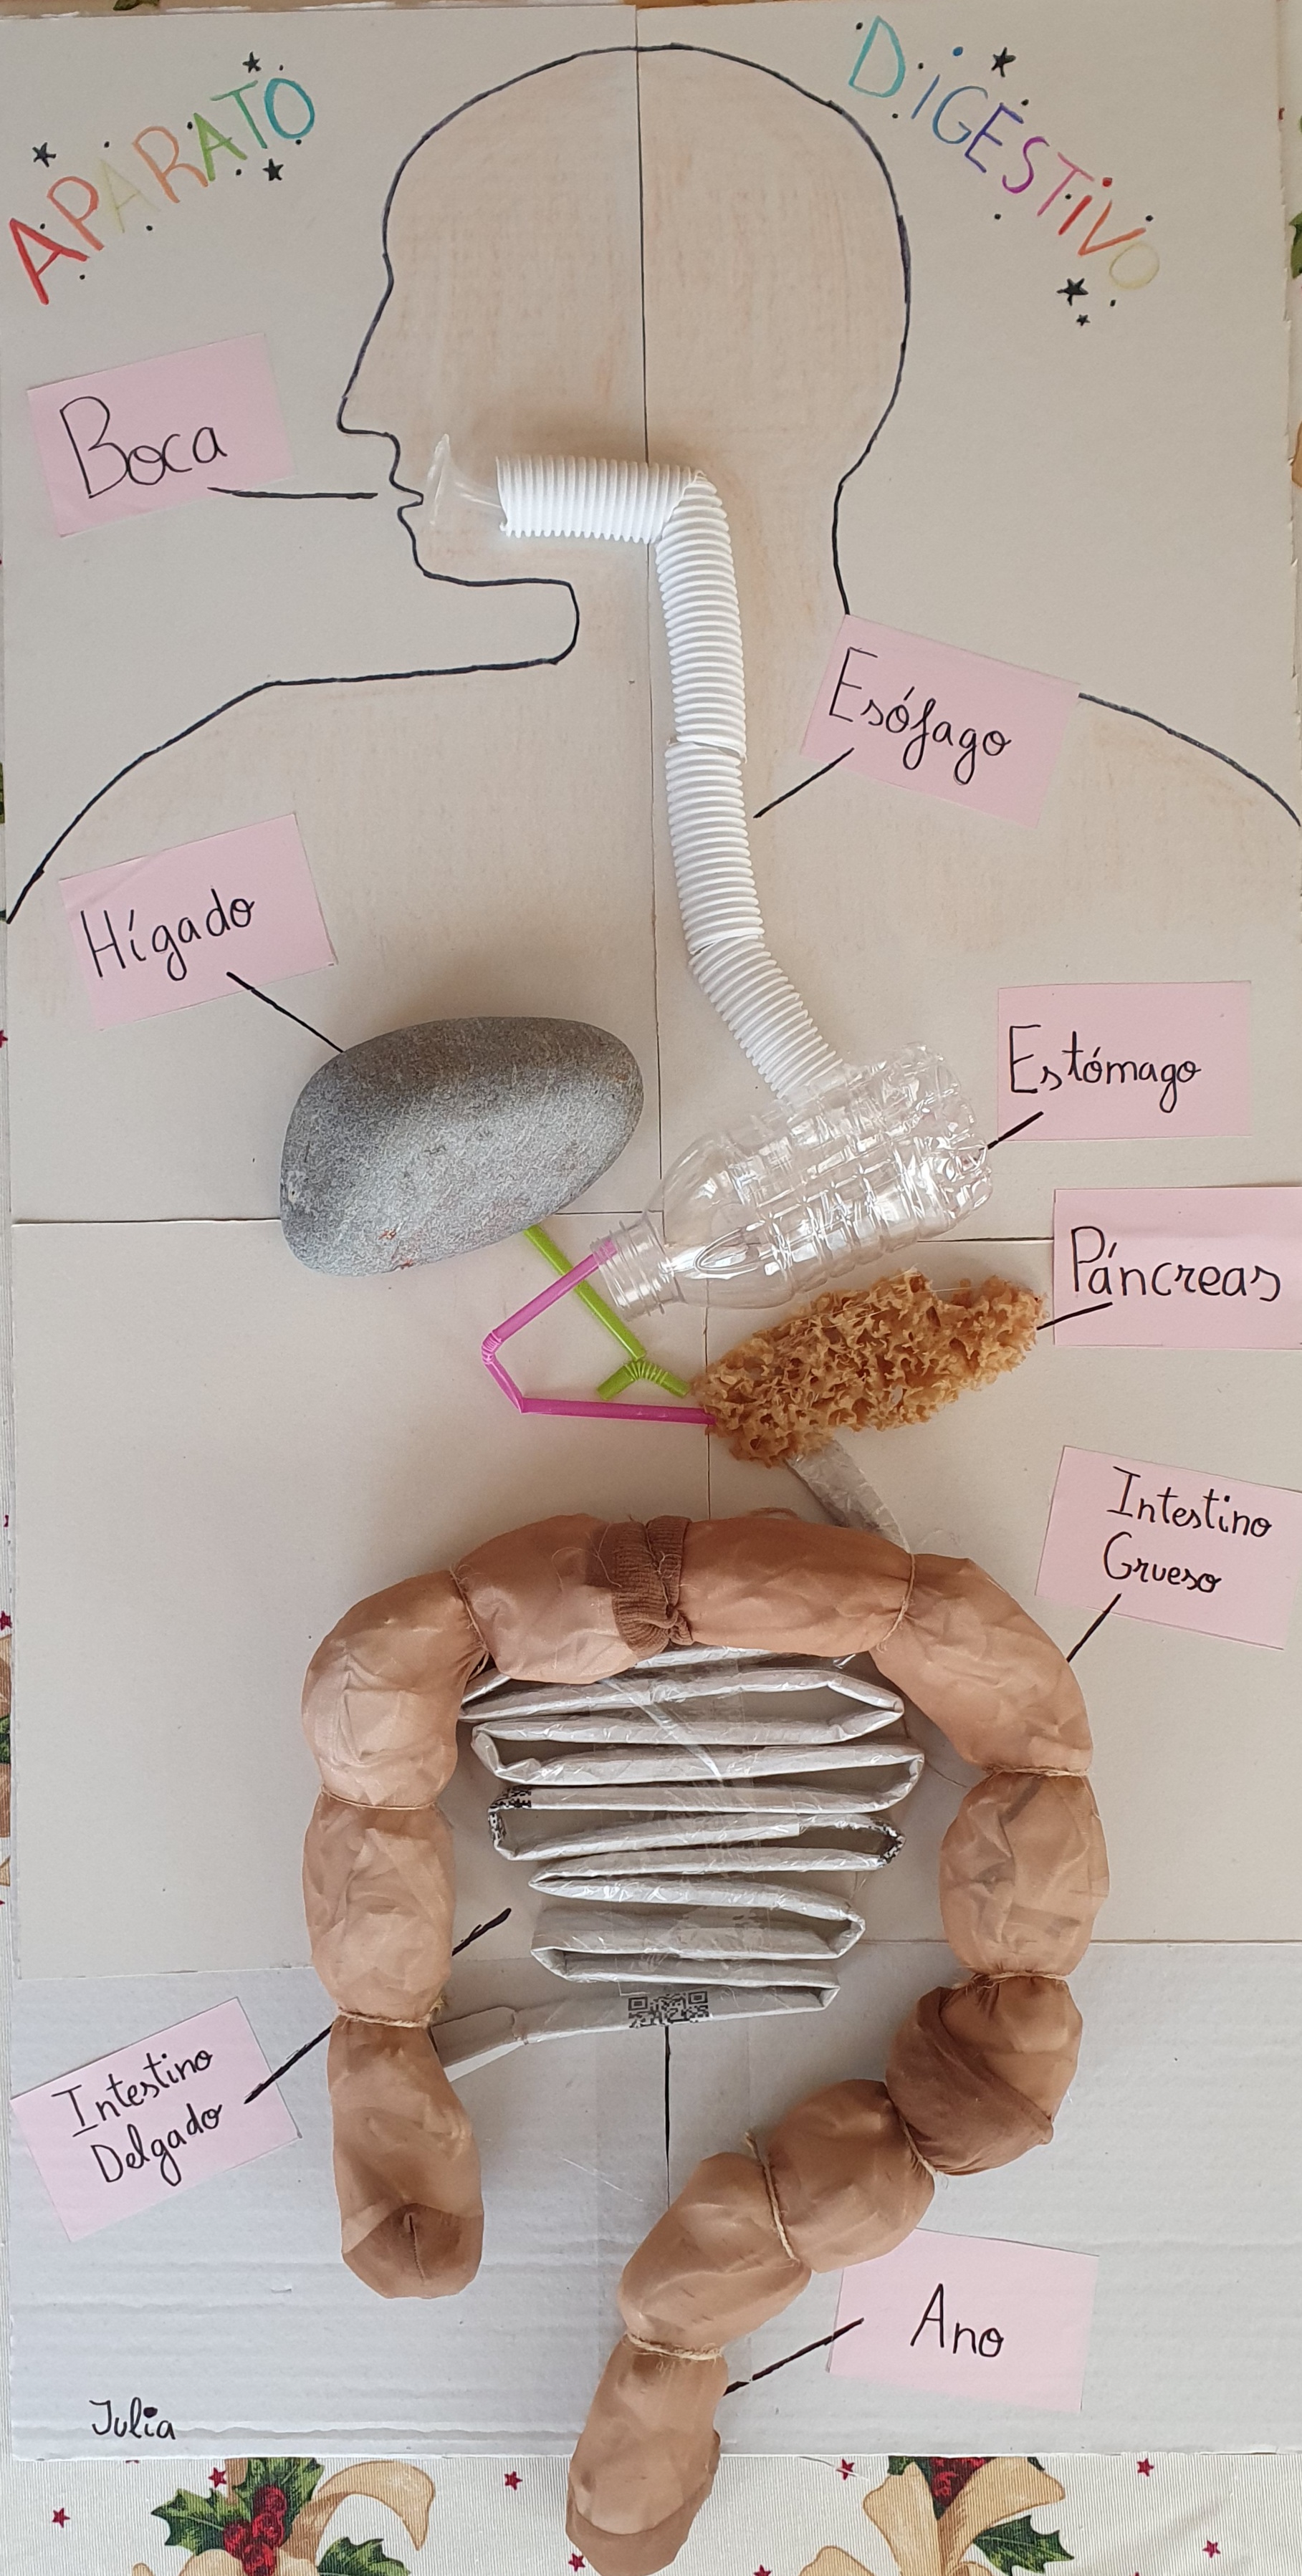 APARATO
DiGESTiVO
Boca
Esófago
Hígado
Estómago
Páncreas
Intestino
Grueso
Intestino
Delgado
Ano
Julia